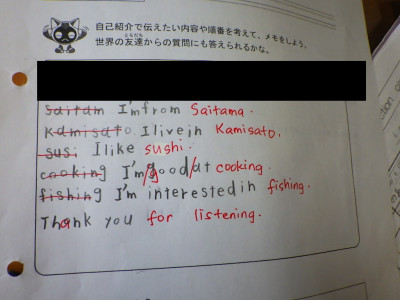 自己紹介で伝えたい内容や順番を考えて、メモをしよう。
世界の友達からの質問にも答えられるかな。
ともだち
saitam I'm from Saitama.
Kamisato I live in Kamisato.
susi I like sushi.
cooking I'm good at cooking.
fishing I'm interested in fishing.
Thank you for listening.